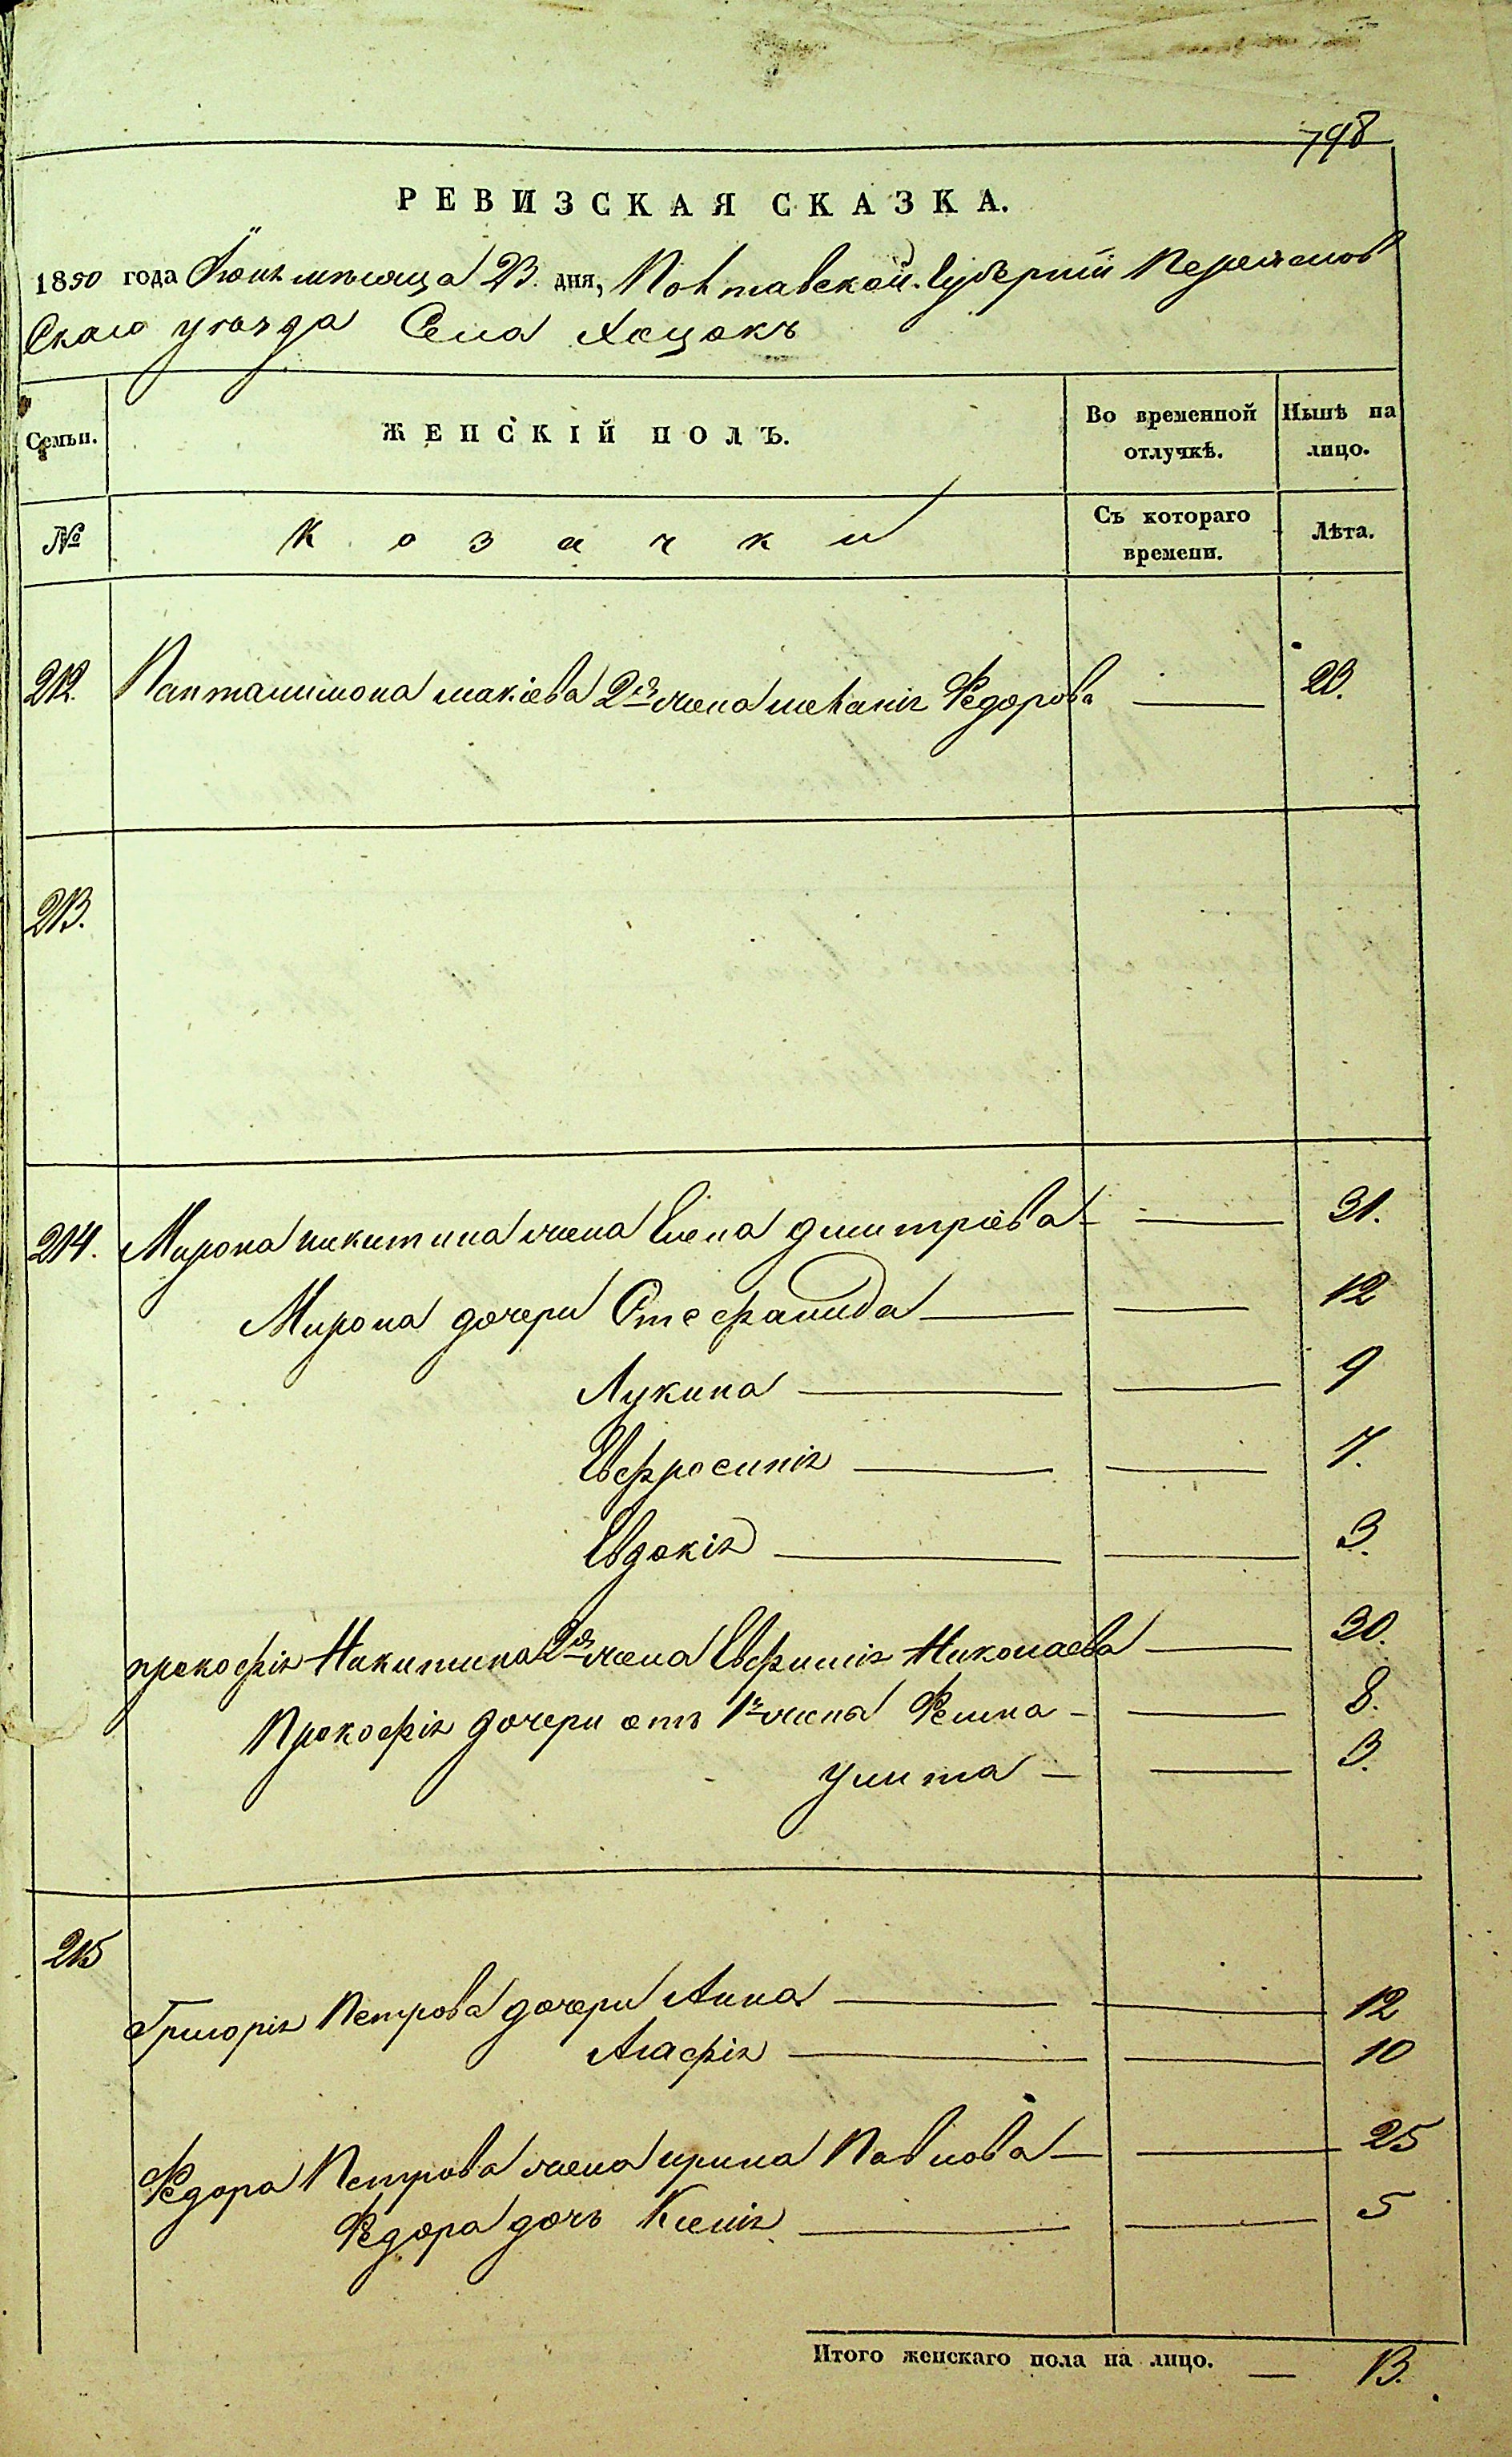 798
РЕВИЗСКАЯ СКАЗКА.
1850 года Іюня мѣсяца 23. дня, Полтавской Губерніи Переяслов
скаго уѣзда Села Хоцокъ
Семьи. ЖЕНСКІЙ ПОЛЪ. Во временной отлучкѣ. Нынѣ на лицо.
№ Козачки Съ котораго времени. Лѣта.
212. Панталимона Макіева 2я жена Меланія Федорова — 23.
213.
214. Мирона Никитина жена Елена Дмитріева — 31.
Мирона дочери Стефанида — 12
Лукина — 9
Евфросинія — 7.
Евдокія — 3.
Прокофія Никитина 2я жена Евфимія Николаева — 30.
Прокофія дочери отъ 1й жены Фекла — 8.
Улита — 3.
215
Григорія Петрова дочери Анна — 12
Агафія — 10
Федора Петрова жена Ирина Павлова — 25
Федора дочь Ксенія — 5
Итого женскаго пола на лицо. — 13.